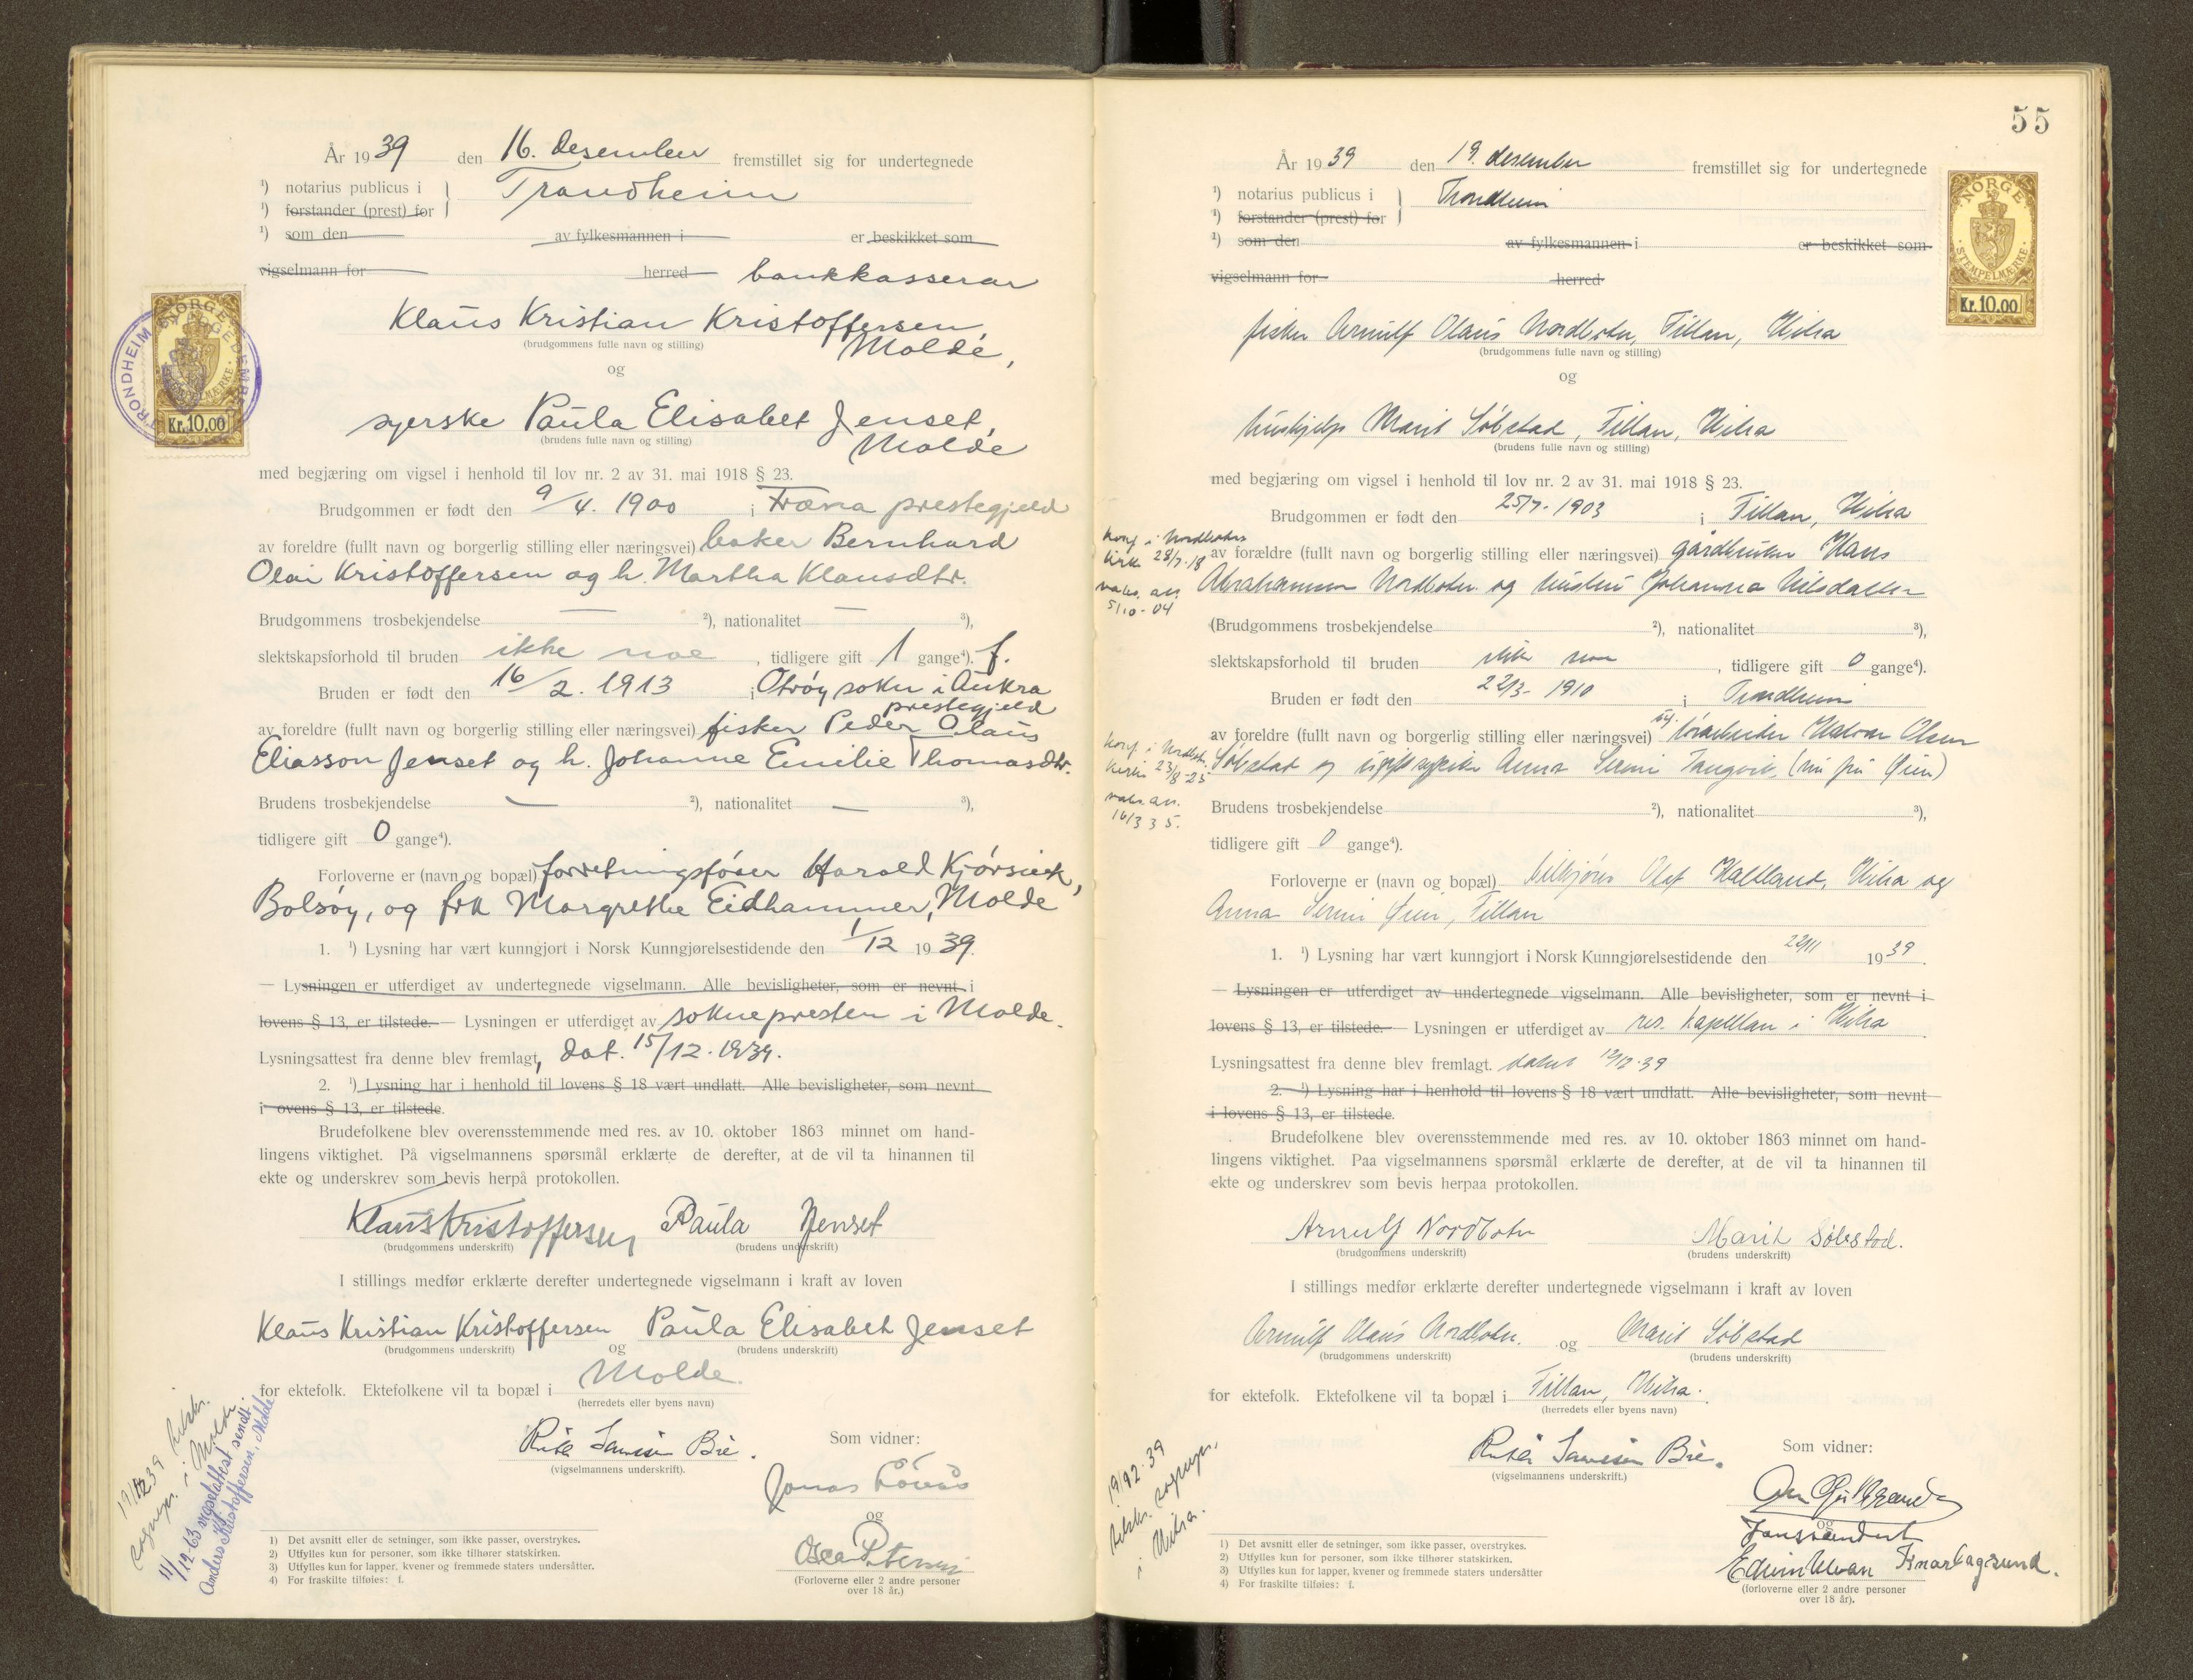 År 19 39 den 16. desember fremstillet sig for undertegnede
¹) notarius publicus i } Trondheim
¹) forstander (prest) for
¹) som den av fylkesmannen i er beskikket som
vigselmann for herred bankkasserar
Klaus Kristian Kristoffersen,
(brudgommens fulle navn og stilling)
Molde,
og
syerske Paula Elisabet Jenset,
(brudens fulle navn og stilling)
Molde
med begjæring om vigsel i henhold til lov nr. 2 av 31. mai 1918 § 23.
Brudgommen er født den 9/4. 1900 i Fræna prestegjeld
av foreldre (fullt navn og borgerlig stilling eller næringsvei) baker Bernhard
Olai Kristoffersen og h. Martha Klausdtr.
Brudgommens trosbekjendelse — ²), nationalitet — ³),
slektskapsforhold til bruden ikke noe , tidligere gift 1 gange⁴). f.
Bruden er født den 16/2. 1913 i Otrøy sokn i Aukra
prestegjeld
av foreldre (fullt navn og borgerlig stilling eller næringsvei) fisker Peder Olaus
Eliasson Jenset og h. Johanne Emilie Thomasdtr.
Brudens trosbekjendelse — ²), nationalitet — ³),
tidligere gift 0 gange⁴).
Forloverne er (navn og bopæl) forretningsfører Harald Kjørsvik,
Bolsøy, og frk Margrethe Eidhammer, Molde
1. ¹) Lysning har vært kunngjort i Norsk Kunngjørelsestidende den 1/12 19 39.
— Lysningen er utferdiget av undertegnede vigselmann. Alle bevisligheter, som er nevnt i
lovens § 13, er tilstede. — Lysningen er utferdiget av sokneprester i Molde.
Lysningsattest fra denne blev fremlagt, dat. 15/12.1939.
2. ¹) Lysning har i henhold til lovens § 18 vært undlatt. Alle bevisligheter, som nevnt
i ovens § 13, er tilstede.
Brudefolkene blev overensstemmende med res. av 10. oktober 1863 minnet om hand-
lingens viktighet. På vigselmannens spørsmål erklærte de derefter, at de vil ta hinannen til
ekte og underskrev som bevis herpå protokollen.
Klaus Kristoffersen Paula Jenset
(brudgommens underskrift) (brudens underskrift)
I stillings medfør erklærte derefter undertegnede vigselmann i kraft av loven
Klaus Kristian Kristoffersen og Paula Elisabet Jenset
(brudgommens underskrift) (brudens underskrift)
for ektefolk. Ektefolkene vil ta bopæl i Molde.
(herredets eller byens navn)
Som vidner:
(vigselmannens underskrift).
Jonas
og
(Forloverne eller 2 andre personer
over 18 år.)
19/12 39
sognepr. i Molde.
11/12-63 vigselattest sendt
Anders Kristoffersen, Molde
1) Det avsnitt eller de setninger, som ikke passer, overstrykes.
2) Utfylles kun for personer, som ikke tilhører statskirken.
3) Utfylles kun for lapper, kvener og fremmede staters undersåtter.
4) For fraskilte tilføies: f.
NORGE
STEMPELMÆRKE
Kr. 10.00
TRONDHEIM
55
År 19 39 den 19. desember fremstillet sig for undertegnede
¹) notarius publicus i } Trondheim
¹) forstander (prest) for
¹) som den av fylkesmannen i er beskikket som
vigselmann for herred
NORGE
STEMPELMÆRKE
Kr. 10.00
fisker Arnulf Olaus Nordbotn, Fillan, Hitra
(brudgommens fulle navn og stilling)
og
hushjelp Marit Søbstad, Fillan, Hitra
(brudens fulle navn og stilling)
med begjæring om vigsel i henhold til lov nr. 2 av 31. mai 1918 § 23.
Brudgommen er født den 25/7. 1903 i Fillan, Hitra
konf. i Nordbotn
kirke 28/7-18
av forældre (fullt navn og borgerlig stilling eller næringsvei) gårdbruker Hans
Abrahamsen Nordbotn og hustru Johanna Nilsdatter
5/10-04
(Brudgommens trosbekjendelse ²), nationalitet ³),
slektskapsforhold til bruden ikke noe , tidligere gift 0 gange⁴).
Bruden er født den 22/3- 1910 i Trondheim
av foreldre (fullt navn og borgerlig stilling eller næringsvei) Halvor Olsen
konf. i Nordbotn
kirke 23/8-25
Søbstad og Anna Sermi Tangvik, (nu fru Øien)
16/3 35.
Brudens trosbekjendelse ²), nationalitet ³),
tidligere gift 0 gange⁴).
Forloverne er (navn og bopæl) Olaf Hattland, Hitra og
Anna Sermi Øien, Fillan
1. ¹) Lysning har vært kunngjort i Norsk Kunngjørelsestidende den 22/11 19 39.
— Lysningen er utferdiget av undertegnede vigselmann. Alle bevisligheter, som er nevnt i
lovens § 13, er tilstede. — Lysningen er utferdiget av res. kapellan i Hitra.
Lysningsattest fra denne blev fremlagt. datert 12/12-39
2. ¹) Lysning har i henhold til lovens § 18 vært undlatt. Alle bevisligheter, som nevnt
i lovens § 13, er tilstede.
Brudefolkene blev overensstemmende med res. av 10. oktober 1863 minnet om hand-
lingens viktighet. Paa vigselmannens spørsmål erklærte de derefter, at de vil ta hinannen til
ekte og underskrev som bevis herpaa protokollen.
Arnulf Nordbotn Marit Søbstad.
(brudgommens underskrift) (brudens underskrift)
I stillings medfør erklærte derefter undertegnede vigselmann i kraft av loven
Arnulf Olaus Nordbotn. og Marit Søbstad
(brudgommens underskrift) (brudens underskrift)
for ektefolk. Ektefolkene vil ta bopæl i Fillan, Hitra.
(herredets eller byens navn)
Som vidner:
(vigselmannens underskrift.)
og
Edvin Ulvan Knarlagsund.
(forloverne eller 2 andre personer
over 18 år).
19/12-39
sognepr.
i Hitra.
1) Det avsnitt eller de setninger, som ikke passer, overstrykes.
2) Utfylles kun for personer, som ikke tilhører statskirken.
3) Utfylles kun for lapper, kvener og fremmede staters undersåtter
4) For fraskilte tilføies: f.